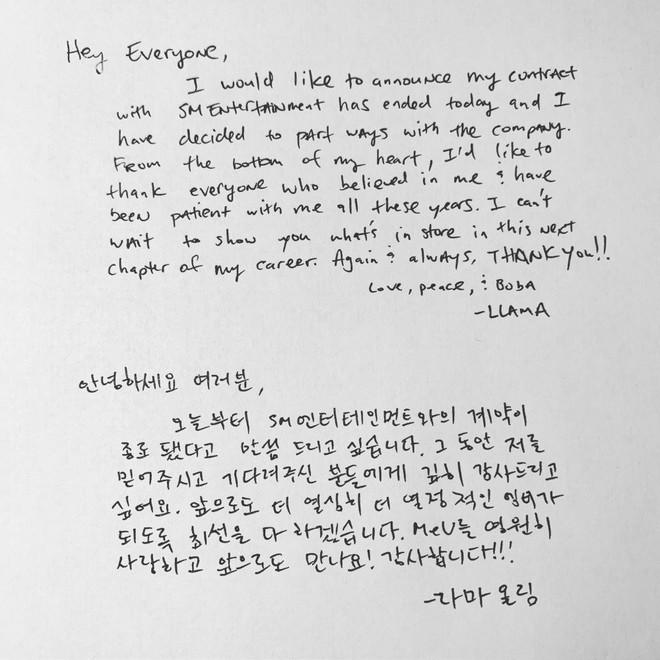 Hey Everyone,
I would like to announce my contract
with SM Entertainment has ended today and I
have decided to part ways with the company.
From the bottom of my heart, I'd like to
thank everyone who believed in me & have
been patient with me all these years. I can't
wait to show you what's in store in this next
chapter of my career. Again & always, THANK You!!
Love, peace, & BOBA
-LLAMA
안녕하세요 여러분,
오늘부터 SM엔터테인먼트와의 계약이
종료 됐다고 말씀 드리고 싶습니다. 그 동안 저를
믿어주시고 기다려주신 분들에게 깊히 감사드리고
싶어요. 앞으로도 더 열심히 더 열정적인 엠버가
되도록 최선을 다 하겠습니다. MeU를 영원히
사랑하고 앞으로도 만나요! 감사합니다!!!
-라마 올림